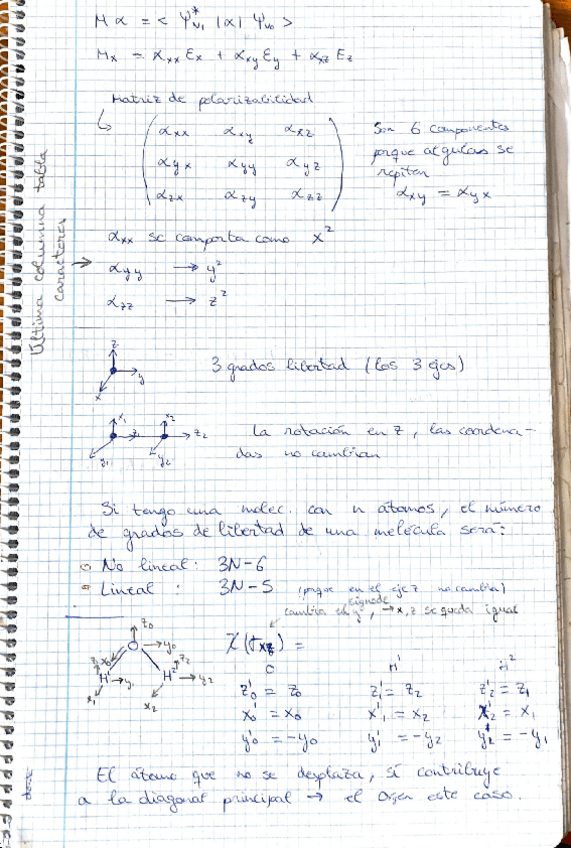 M α = < Ψ*ν1 |α| Ψν0 >
Mx = αxx Ex + αxy Ey + αxz Ez
Matriz de polarizabilidad
αxx αxy αxz
αyx αyy αyz
αzx αzy αzz
Son 6 componentes
porque algunas se
repiten
αxy = αyx
Última columna tabla
caracteres
αxx se comporta como x²
αyy → y²
αzz → z²
z
y
x
3 grados libertad (los 3 ejes)
x1 x2
z1 z2
y1 y2
La rotación en z, las coordena-
das no cambian
Si tengo una molec. con n átomos, el número
de grados de libertad de una molécula será:
No lineal: 3N-6
Lineal : 3N-5 (porque en el eje z no cambia)
cambia el signo de y, → x, z se queda igual
z0
O y0
x0
H¹ y1 H² z2 y2
x1 x2
χ(σxz) =
O H¹ H²
z'0 = z0 z'1 = z2 z'2 = z1
x'0 = x0 x'1 = x2 x'2 = x1
y'0 = -y0 y'1 = -y2 y'2 = -y1
El átomo que no se desplaza, sí contribuye
a la diagonal principal → el O en este caso.